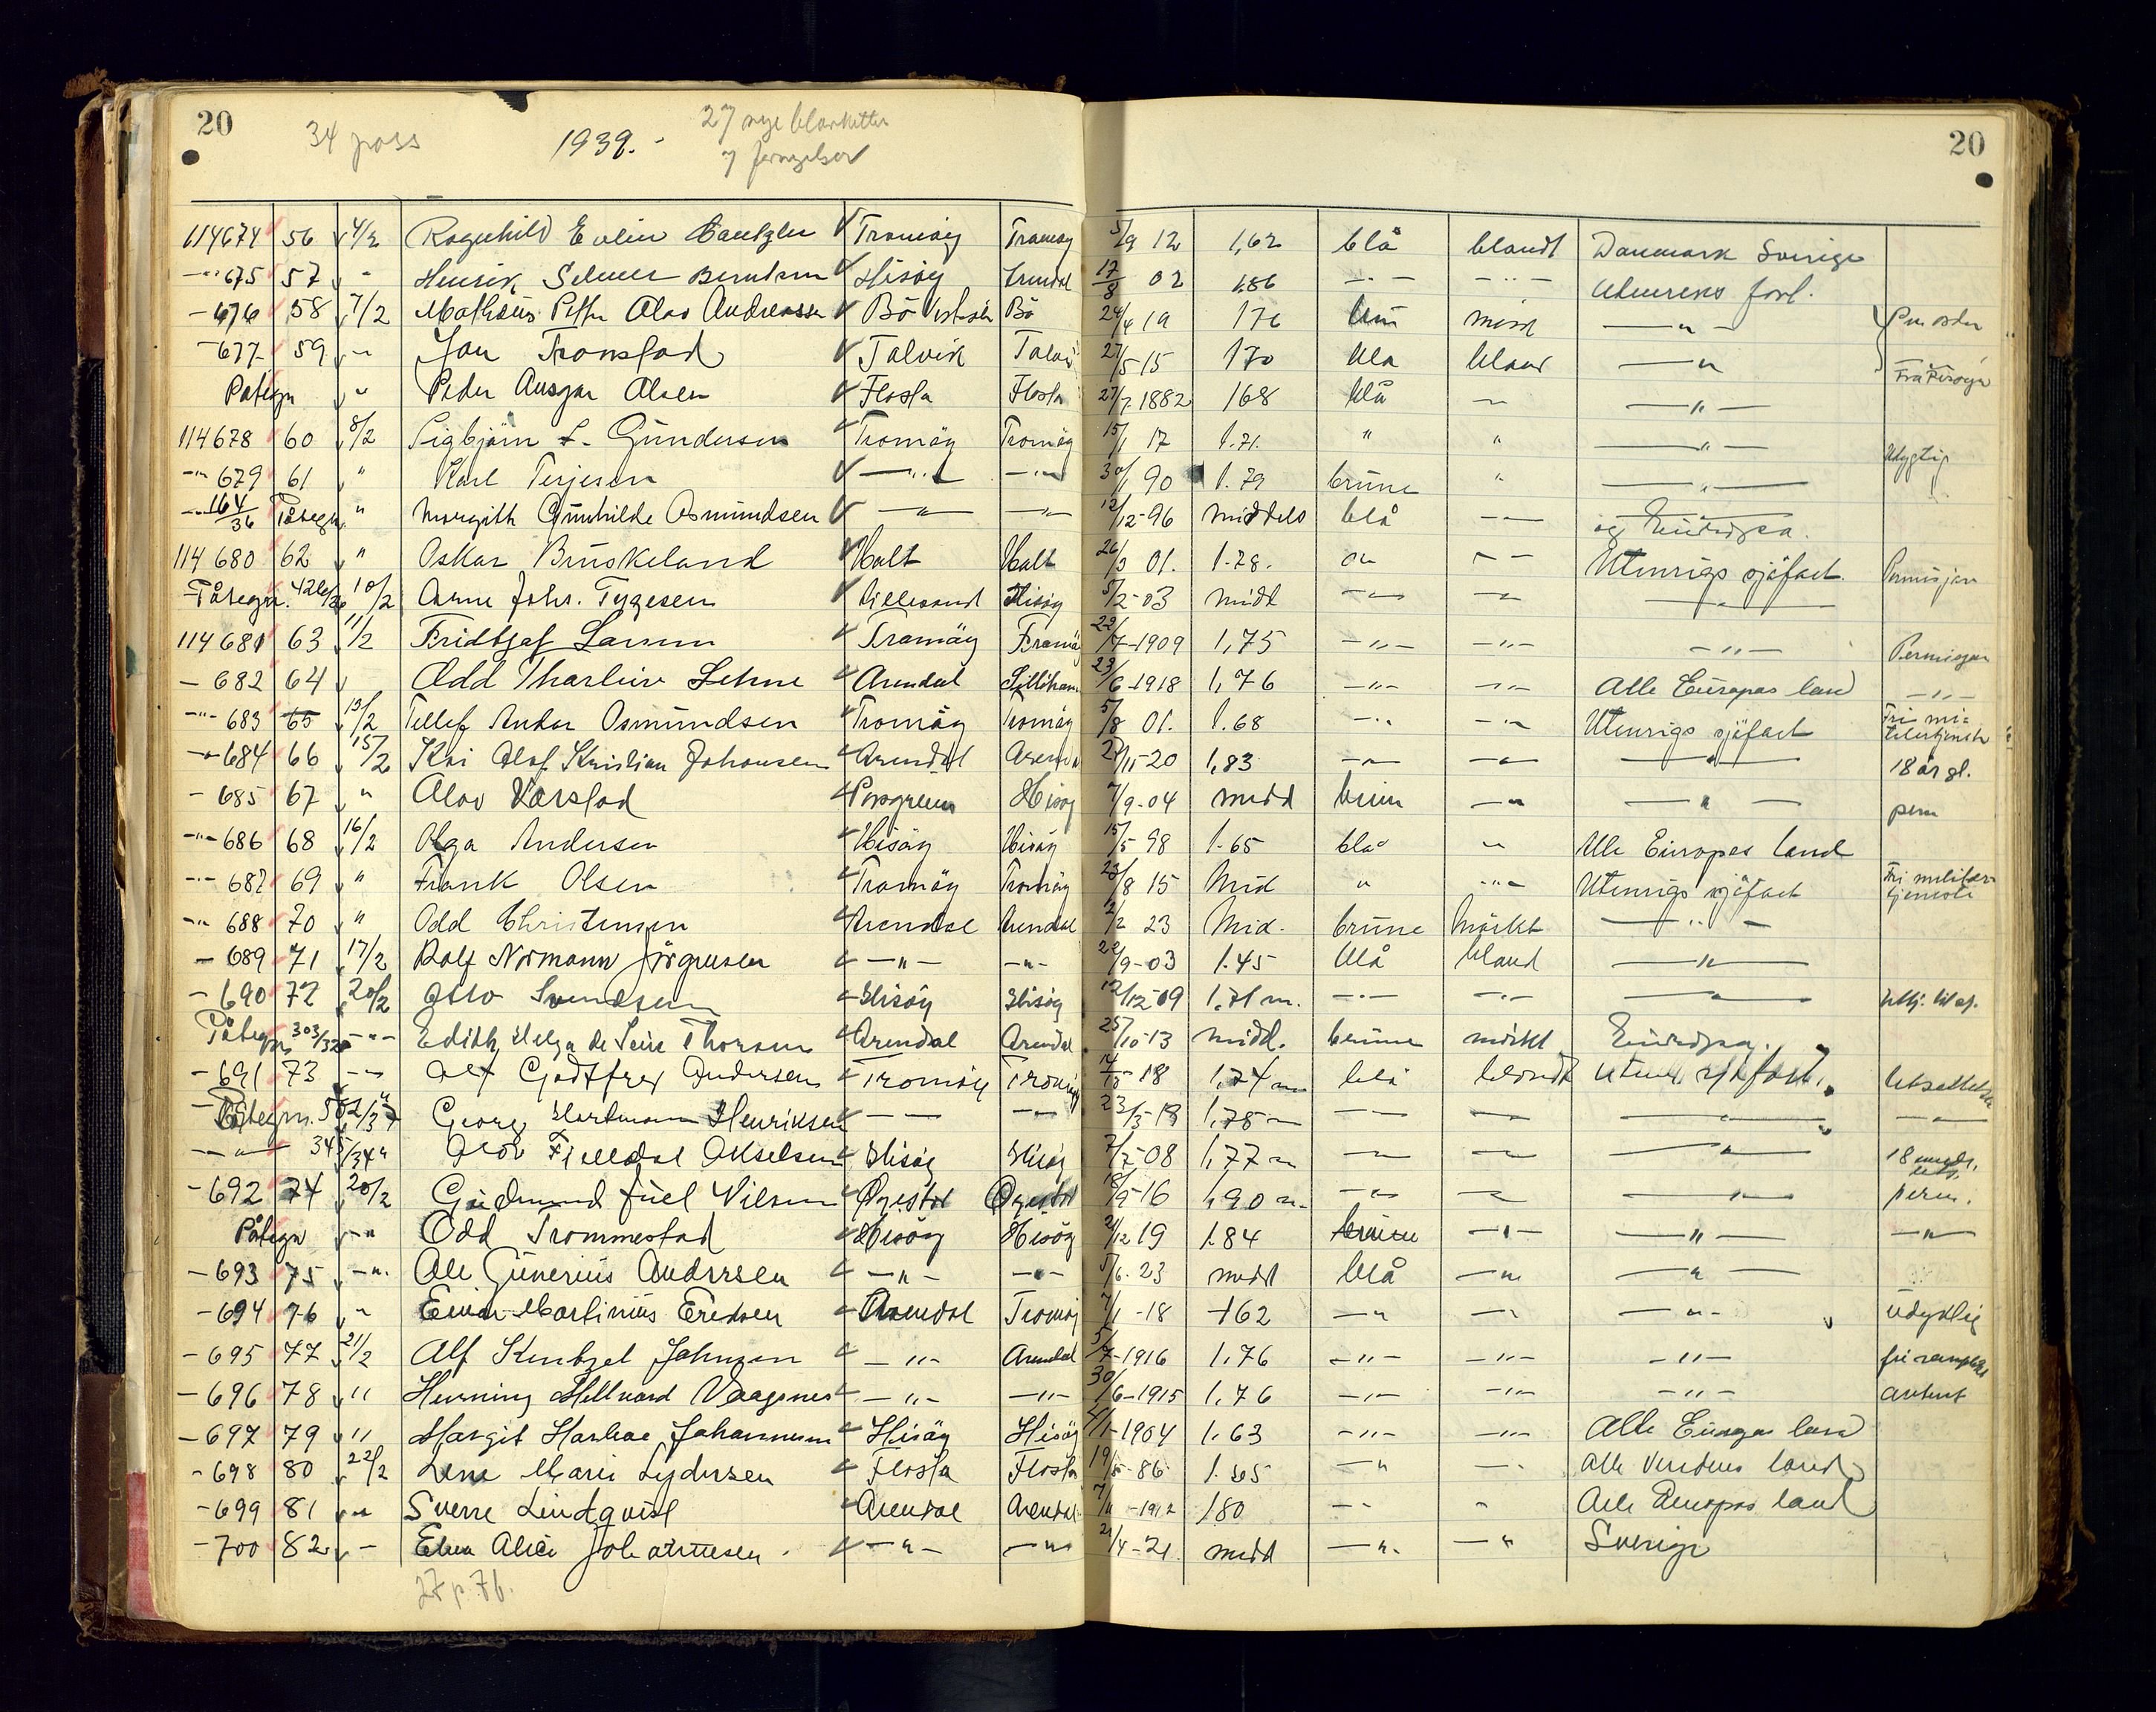 20 20
34 pass 1939.- 27 nye blanketter
7 fornyelser
114674 56 4/2 Ragnhild Evelin Tromøy Tromøy 5/9 12 1,62 blå blondt Danmark Sverige
-"- 675 57 - Henrik Selmer Berntsen Hisøy Arendal 17/8 02 1.86 -"- -"- Utenriks fart.
- 676 58 7/2 Mathæus Petter Olav Andreassen Bö Bö 24/4 19 176 -"-
- 677 59 -"- Jon Tronstad Talvik Talvik 27/5 15 170 blå blond -"-
Påtegn " Peder Ansgar Olsen Flosta Flosta 27/7 1882 168 blå -"- -"-
114678 60 8/2 Sigbjørn L. Gundersen Tromøy Tromøy 15/1 17 1.71. " " -"- Udygtig
-"- 679 61 " Karl Terjesen -"- -"- 30/1 90 1.79 brune " -"-
-"- 164/36 Påtegn. " Margith Gunhilde Osmundsen -"- -"- 12/12-96 middels blå -"- og Europa.
114680 62 " Oskar Bruskeland Holt Holt 26/3 01. 1.78. -"- -"- Utenrigs sjöfart. Permisjon
Påtegn. 426/36 10/2 Arne Johs. Tygesen Lillesand Hisøy 5/2-03 midl -"- -"- -"-
114681 63 11/2 Fridtjof Larsen Tromøy Tromøy 22/7-1909 1,75 -"- -"- -"- Permisjon
- 682 64 Odd Lehne Arendal 23/6-1918 1,76 -"- -"- Alle Europas land -"-
-"- 683 65 13/2 Tellef Anker Osmundsen Tromøy Tromøy 5/8 01. 1.68 -"- -"- Utenrigs sjöfart Fri mi=
litærtjeneste
-"- 684 66 15/2 Kai Olaf Kristian Johansen Arendal Arendal 27/11-20 1,83 -"- -"- -"- 18 år gl.
- 685 67 " Olav Porsgrunn Hisøy 7/9-04 midd brun -"- -"- perm
-"- 686 68 16/2 Olga Andersen Hisøy Hisøy 15/5 98 1.65 blå -"- Alle Europas land
-"- 687 69 " Frank Olsen Tromøy Tromøy 23/8 15 Mid " -"- Utenrigs sjöfart Fri militær-
tjeneste
-"- 688 70 " Odd Christensen Arendal Arendal 2/2 23 Mid. brune Mörkt -"-
- 689 71 17/2 Rolf Normann Jörgensen -"- -"- 22/9-03 1.45 blå blond -"-
- 690 72 20/2 Svendsen Hisøy Hisøy 12/12-09 1,71 m. -"- -"- -"-
Påtegn. 303/32 -"- Edith Helga Thorsen Arendal Arendal 25/10-13 midd. brune mörkt Europa.
- 691 73 -"- Alf Godtfred Andersen Tromøy Tromøy 18 1,74 m blå blondt Utenr. sjöfart.
Påtegn. 502/37 " Georg Hartmann Henriksen -"- -"- 23/3-18 1,78 m -"- -"- -"- -"-
-"- 345/34 " Olav Fjelldal Akselsen Hisøy Hisøy 08 1,77 m -"- -"- -"- 18
- 692 74 20/2 Gudmund Juel Nilsen Øyestad Øyestad 16 1,90 m. -"- -"- -"- perm.
Påtegn -"- Odd Trommestad Hisøy Hisøy 2/12 19 1.84 brune -"- -"- -"-
- 693 75 -"- Ole Gunerius Andersen -"- -"- 5/6. 23 midd blå -"- -"-
- 694 76 -"- Einar Martinius Eriksen Arendal Tromøy 7/1-18 162 -"- -"- -"- Udyktig
- 695 77 21/2 Alf Kentzel Johnsen -"- Arendal 5/7-1916 1,76 -"- -"- -"-
- 696 78 " Henning Hellvard Vaagsnes -"- -"- 30/6-1915 1,76 -"- -"- -"-
- 697 79 " Margit Johannessen Hisøy Hisøy 4/1-1904 1,63 -"- -"- Alle Europas land
- 698 80 22/2 Lene Marie Lydersen Flosta Flosta 19/5-86 1.65 -"- -"- Alle Verdens land
- 699 81 -"- Sverre Lindqvist Arendal Arendal -1912 180 -"- -"- Alle Europas land
- 700 82 -"- Alice Johannesen -"- -"- 21/4-21. midd -"- -"- Sverige
27 p. 76.